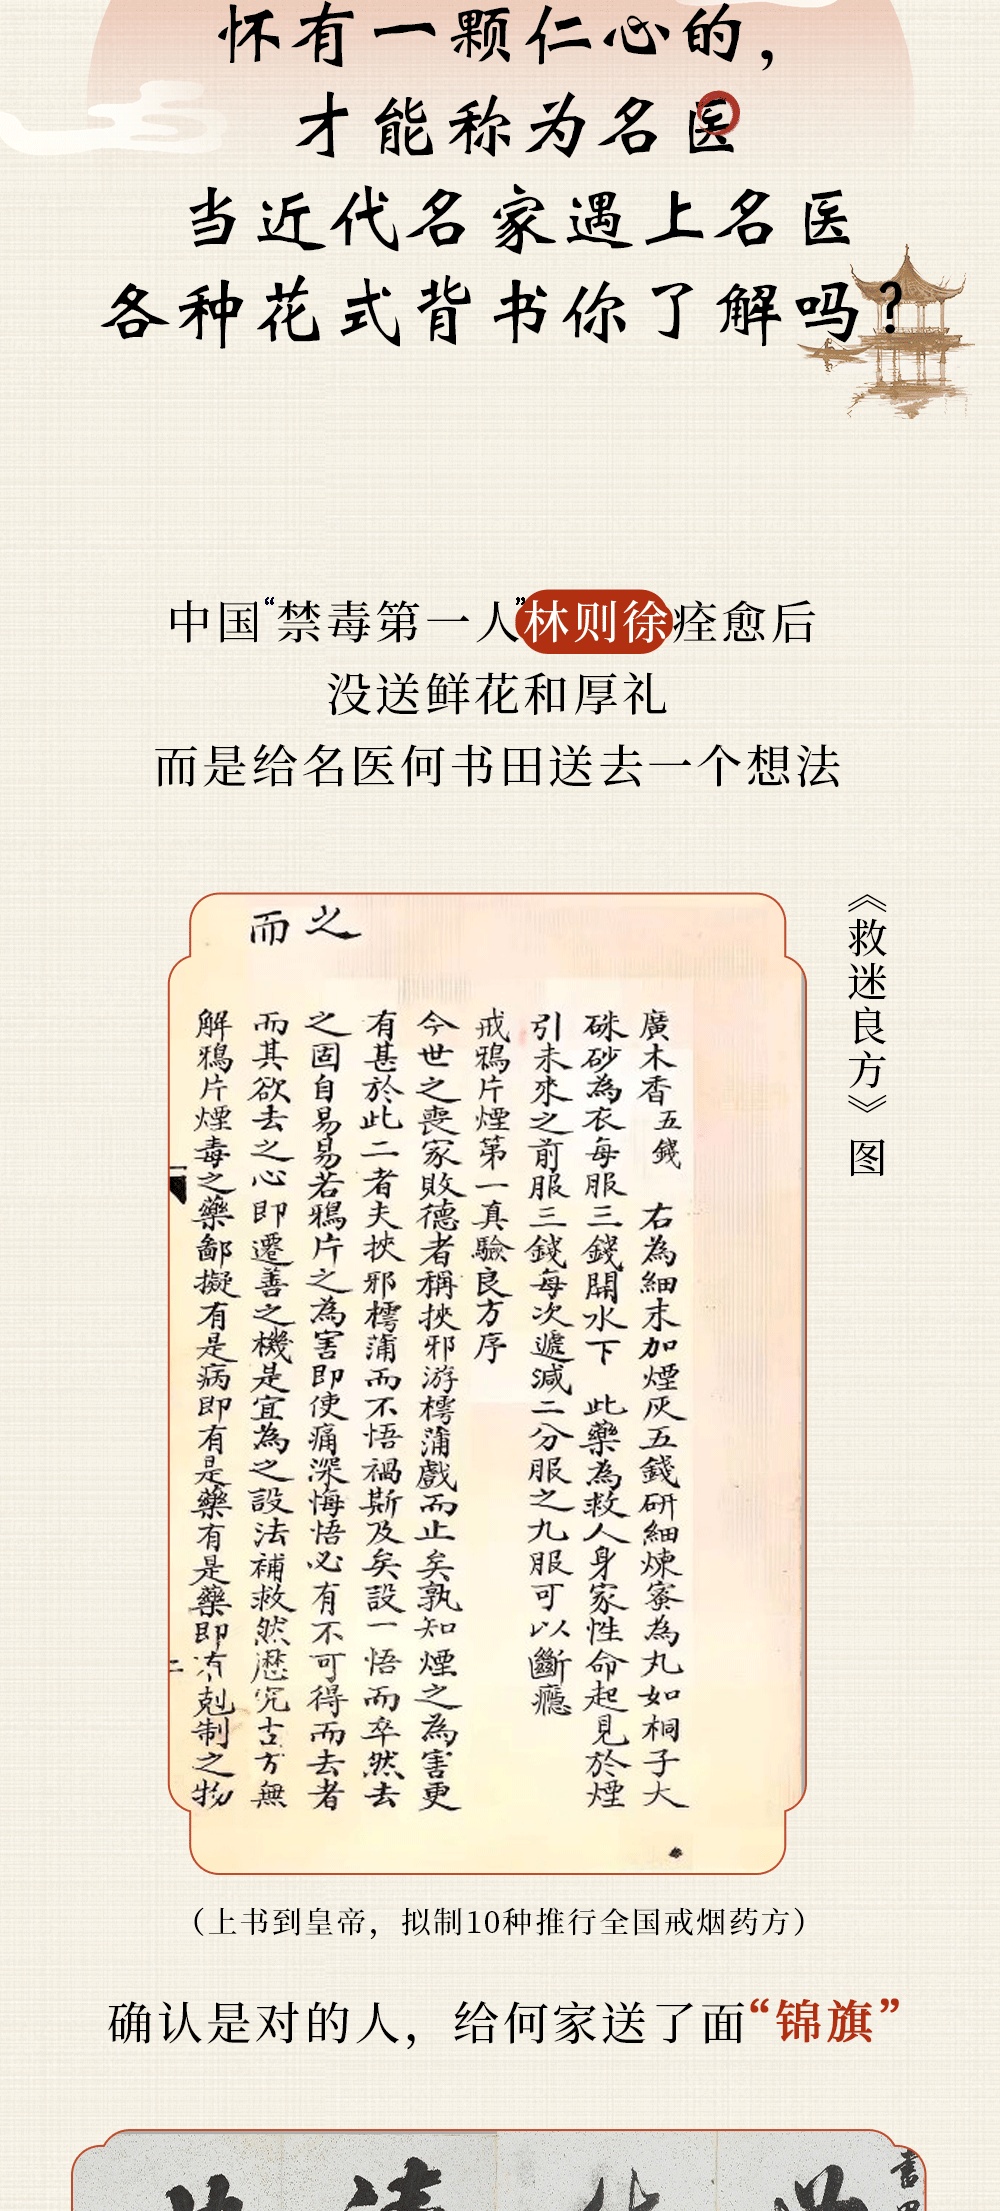 怀有一颗仁心的，
才能称为名医
当近代名家遇上名医
各种花式背书你了解吗？
中国“禁毒第一人”林则徐痊愈后
没送鲜花和厚礼
而是给名医何书田送去一个想法
《救迷良方》图
之而
廣木香五錢 右為細末加煙灰五錢研細煉蜜為丸如桐子大
硃砂為衣每服三錢開水下 此藥為救人身家性命起見於煙
引未來之前服三錢每次遞減二分服之九服可以斷癮
戒鴉片煙第一真驗良方序
今世之喪家敗德者稱挾邪游樗蒲戲而止矣孰知煙之為害更
有甚於此二者夫挾邪樗蒲而不悟禍斯及矣設一悟而卒然去
之固自易易若鴉片之為害即使痛深悔悟必有不可得而去者
而其欲去之心即遷善之機是宜為之設法補救然歷究古方無
解鴉片煙毒之藥鄙擬有是病即有是藥有是藥即有剋制之物
（上书到皇帝，拟制10种推行全国戒烟药方）
确认是对的人，给何家送了面“锦旗”
書